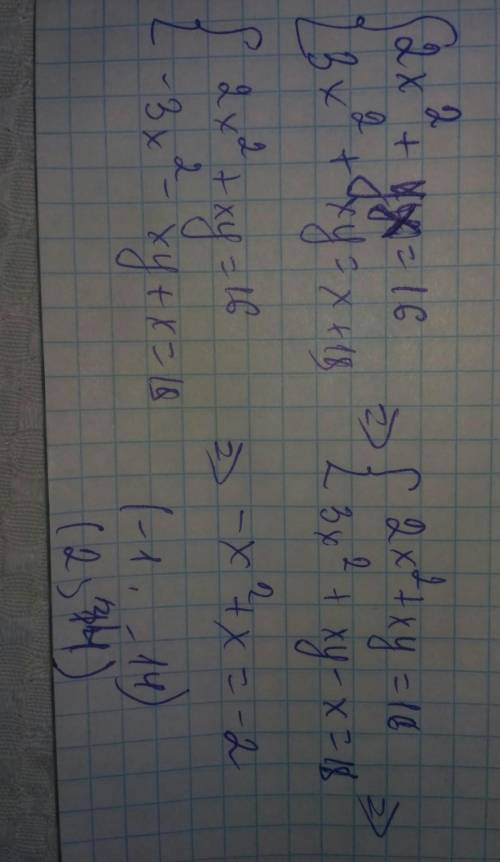 { 2x² + xy = 16
{ 3x² + xy = x + 18
⇒ { 2x² + xy = 16
{ 3x² + xy - x = 18 ⇒
{ 2x² + xy = 16
{ -3x² - xy + x = 18
⇒ -x² + x = -2
(-1; -14)
(2;